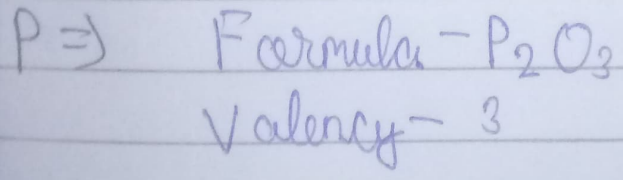 P ⇒ Formula - P₂O₃
Valency - 3